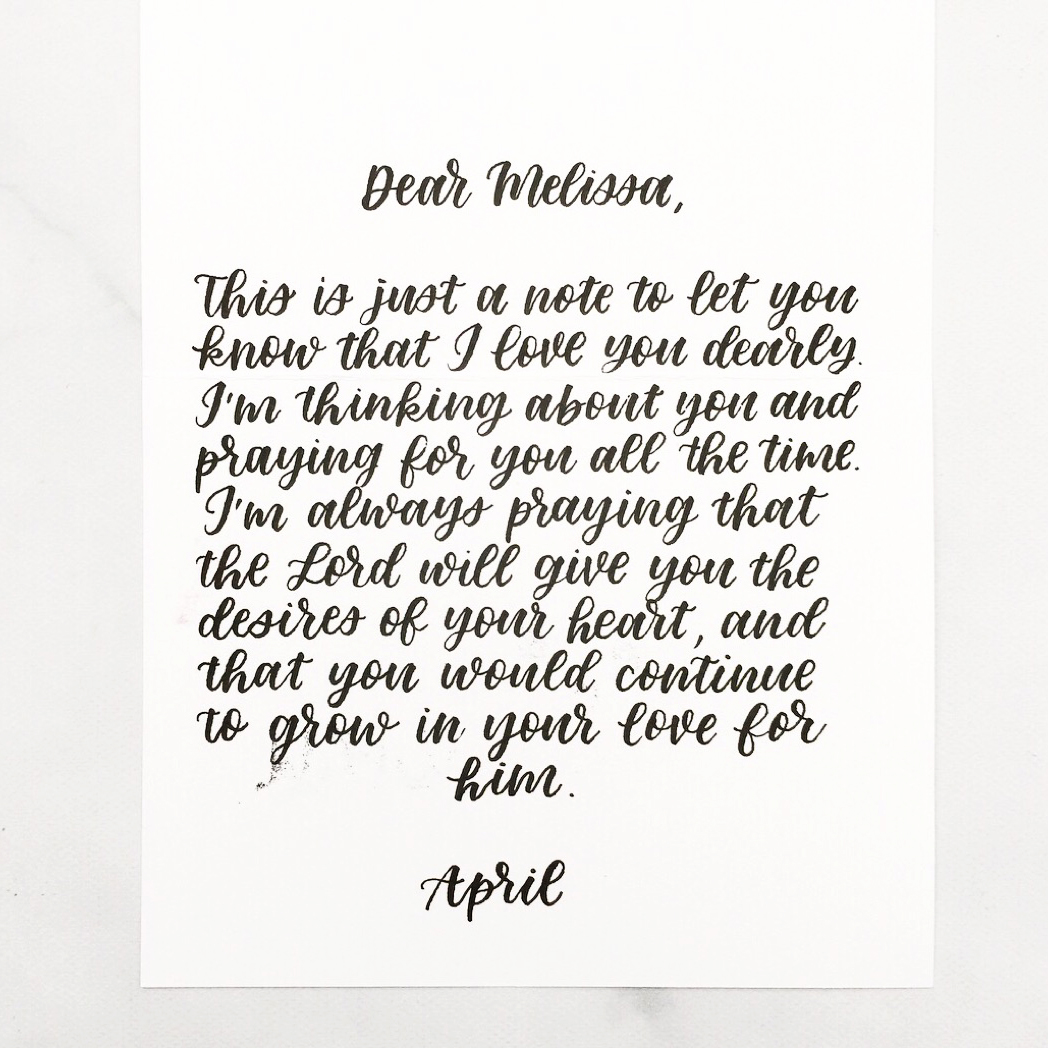 Dear Melissa,
This is just a note to let you
know that I love you dearly.
I'm thinking about you and
praying for you all the time.
I'm always praying that
the Lord will give you the
desires of your heart, and
that you would continue
to grow in your love for
him.
April